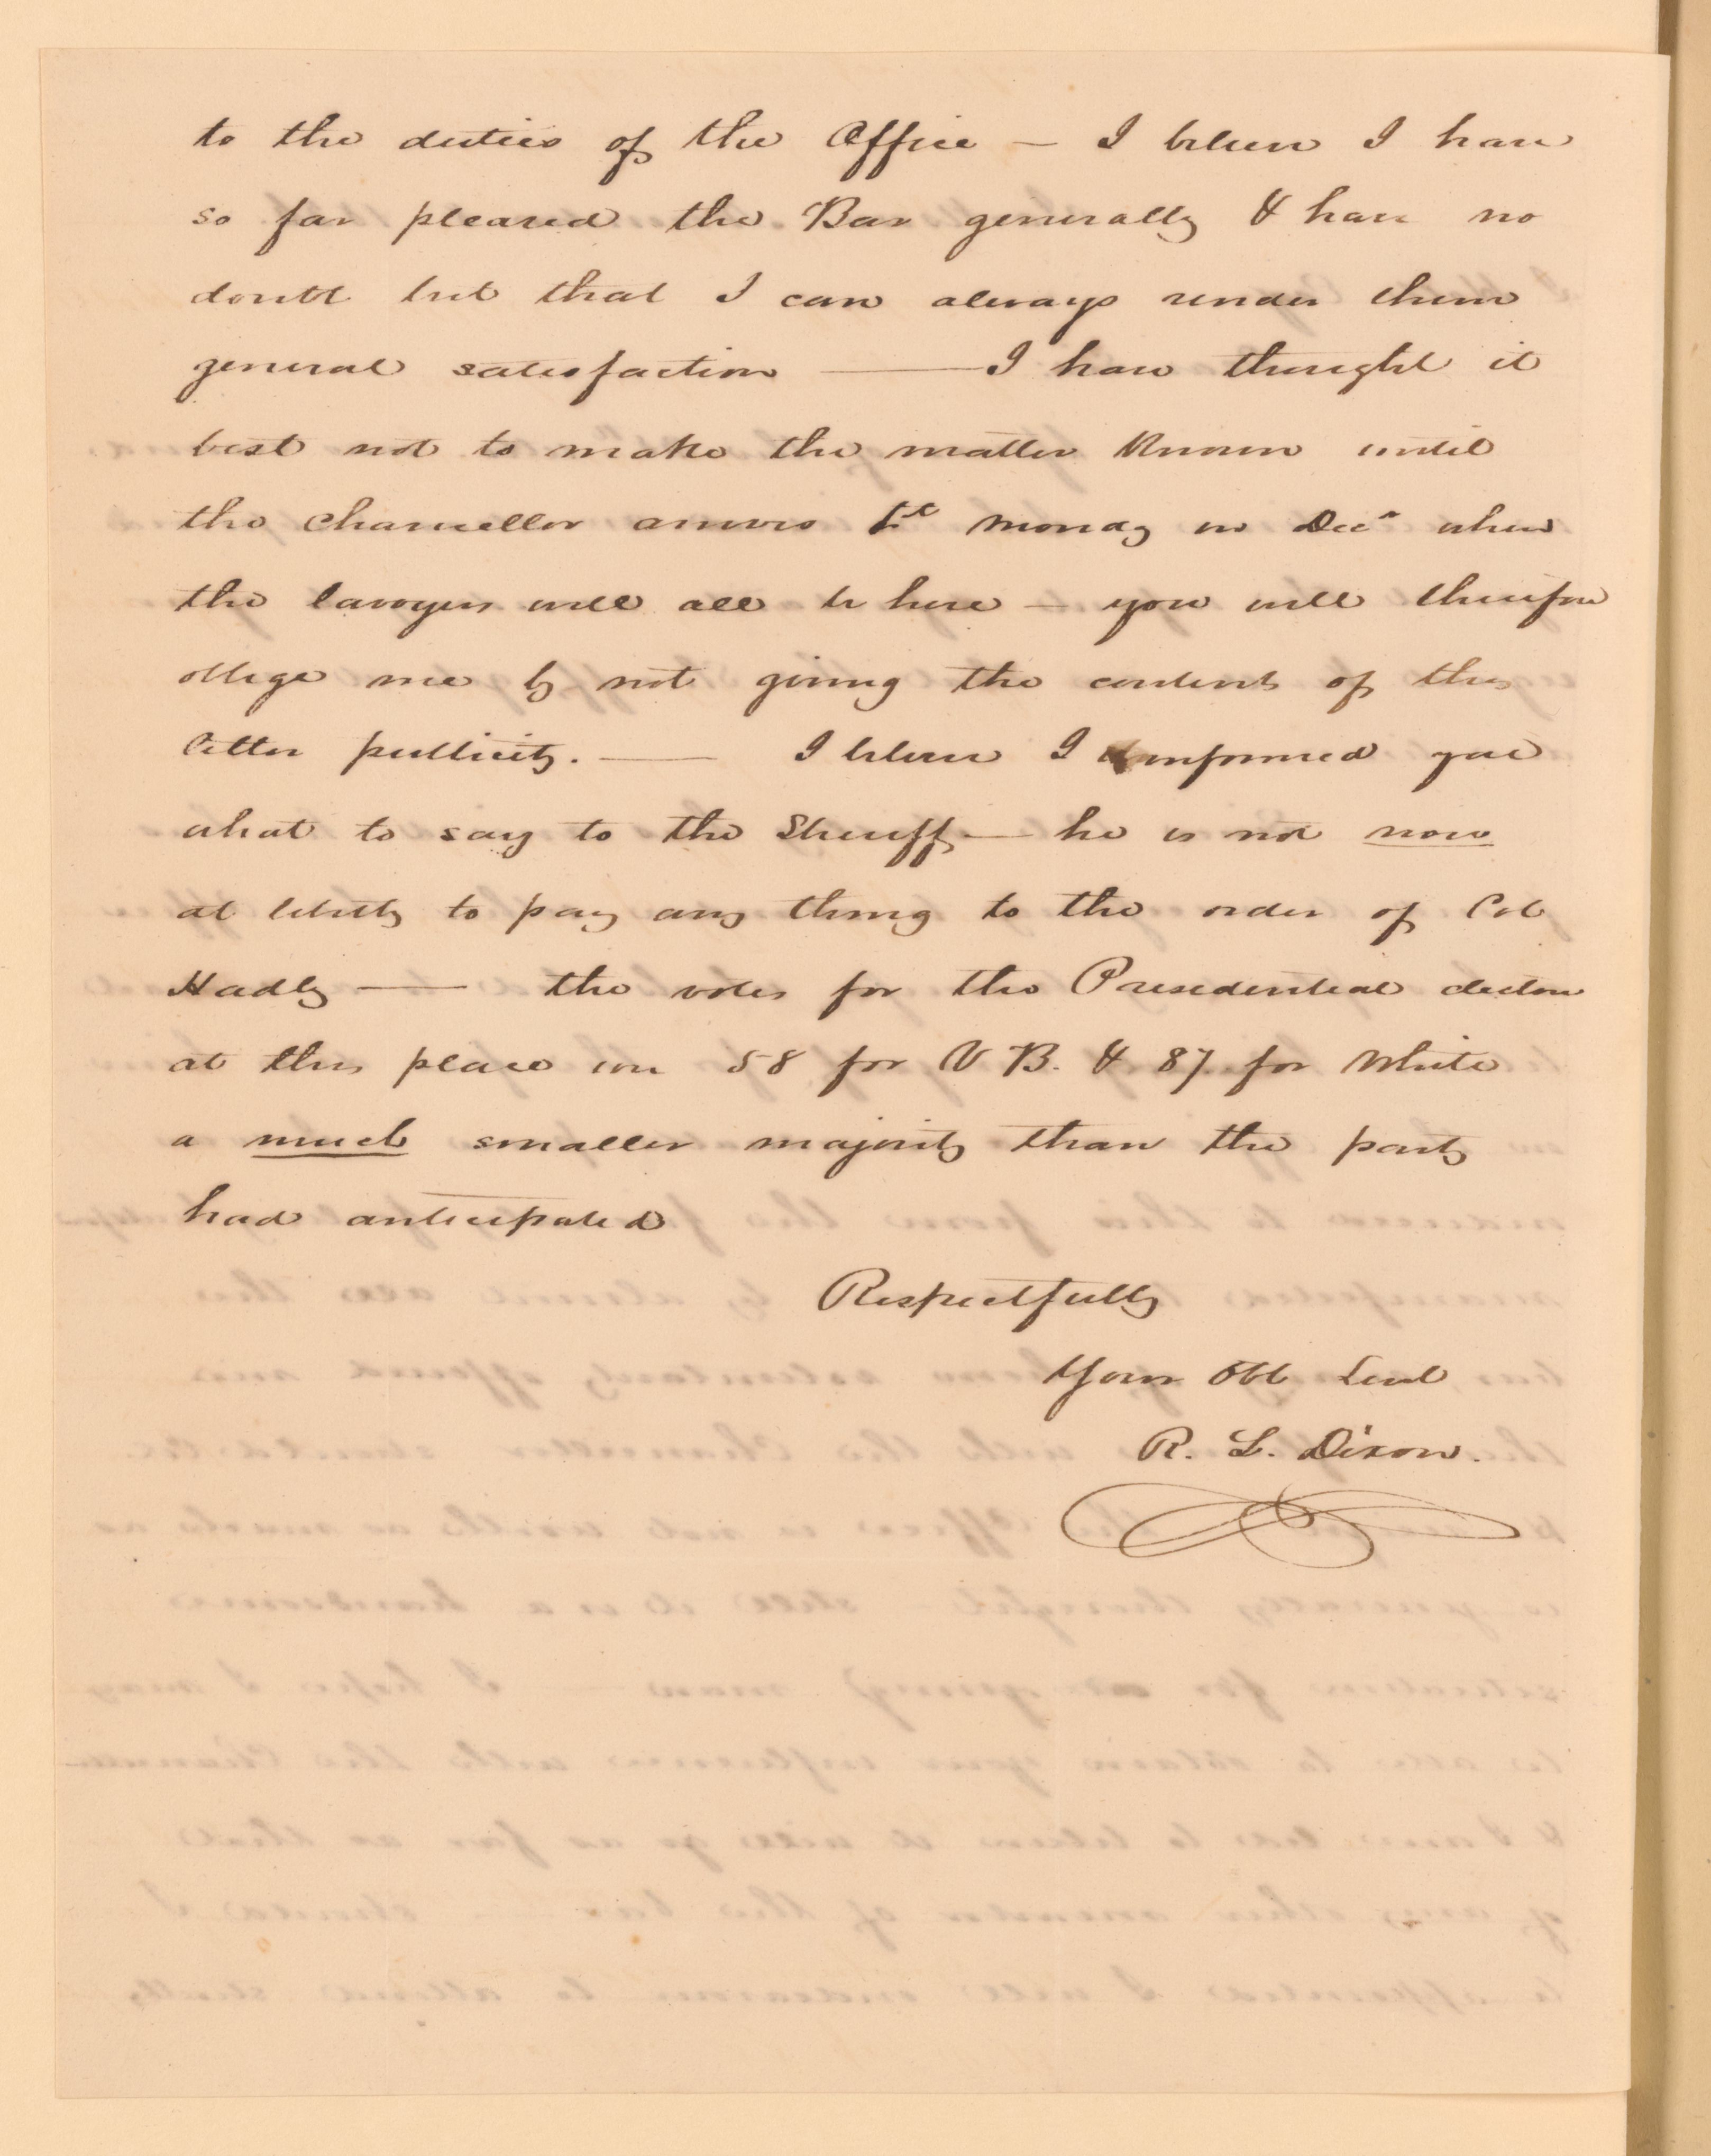 to the duties of the Office — I believe I have
so far pleased the Bar generally & have no
doubt but that I can always render them
general satisfaction —— I have thought it
best not to make the matter known until
the Chancellor arrives 1st Monday in Decr when
the lawyers will all be here — you will therefore
oblige me by not giving the contents of this
letter publicity. —— I believe I informed you
what to say to the Sheriff — he is not now
at liberty to pay any thing to the order of Col
Hadly —— the votes for the Presidential electors
at this place were 58 for V B. & 87 for White
a much smaller majority than the party
had anticipated
Respectfully
Your Obt Servt
R. L. Dixon.